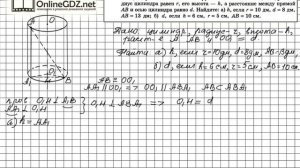 OnlineGDZ.net
двух цилиндра равен r, его высота — h, а расстояние между прямой
АВ и осью цилиндра равно d. Найдите: а) h, если r = 10 дм, d = 8 дм,
АВ = 13 дм; б) d, если h = 6 см, r = 5 см, АВ = 10 см.
Дано: цилиндр, радиус - r, высота - h,
АВ и OO₁ = d
Найти а) h, если r=10дм, d=8дм, АВ=13дм,
б) d, если h=6см, r=5см, АВ=10см.
AA₁ || OO₁ => OO₁ || ABA₁ AB⊂ABA₁
O₁H ⊥ A₁B
AA₁ ⊥ O₁H
} O₁H ⊥ ABA₁ => O₁H = d
а) h = AA₁